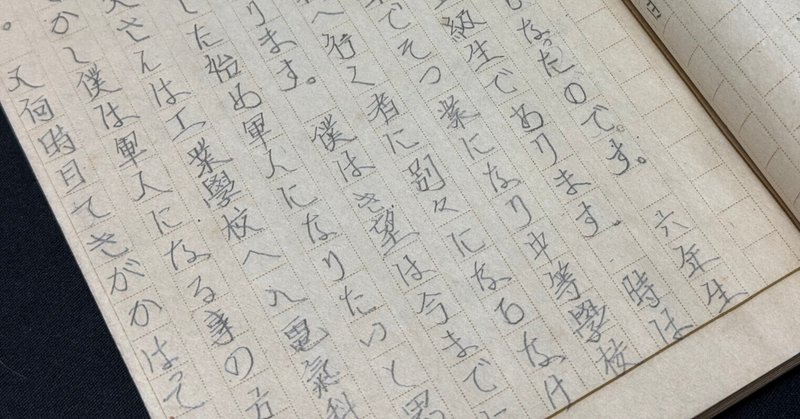 もなったのです。 六年生
級生であります。 時は
でそつ業になり中等學校
へ行く者に別々になるなけ
ります。 僕はき望は今まで
した始め軍人になりたいと思
さんは工業學校へ入電氣科
かし僕は軍人になる事の方
。 又何時目てきがかはって